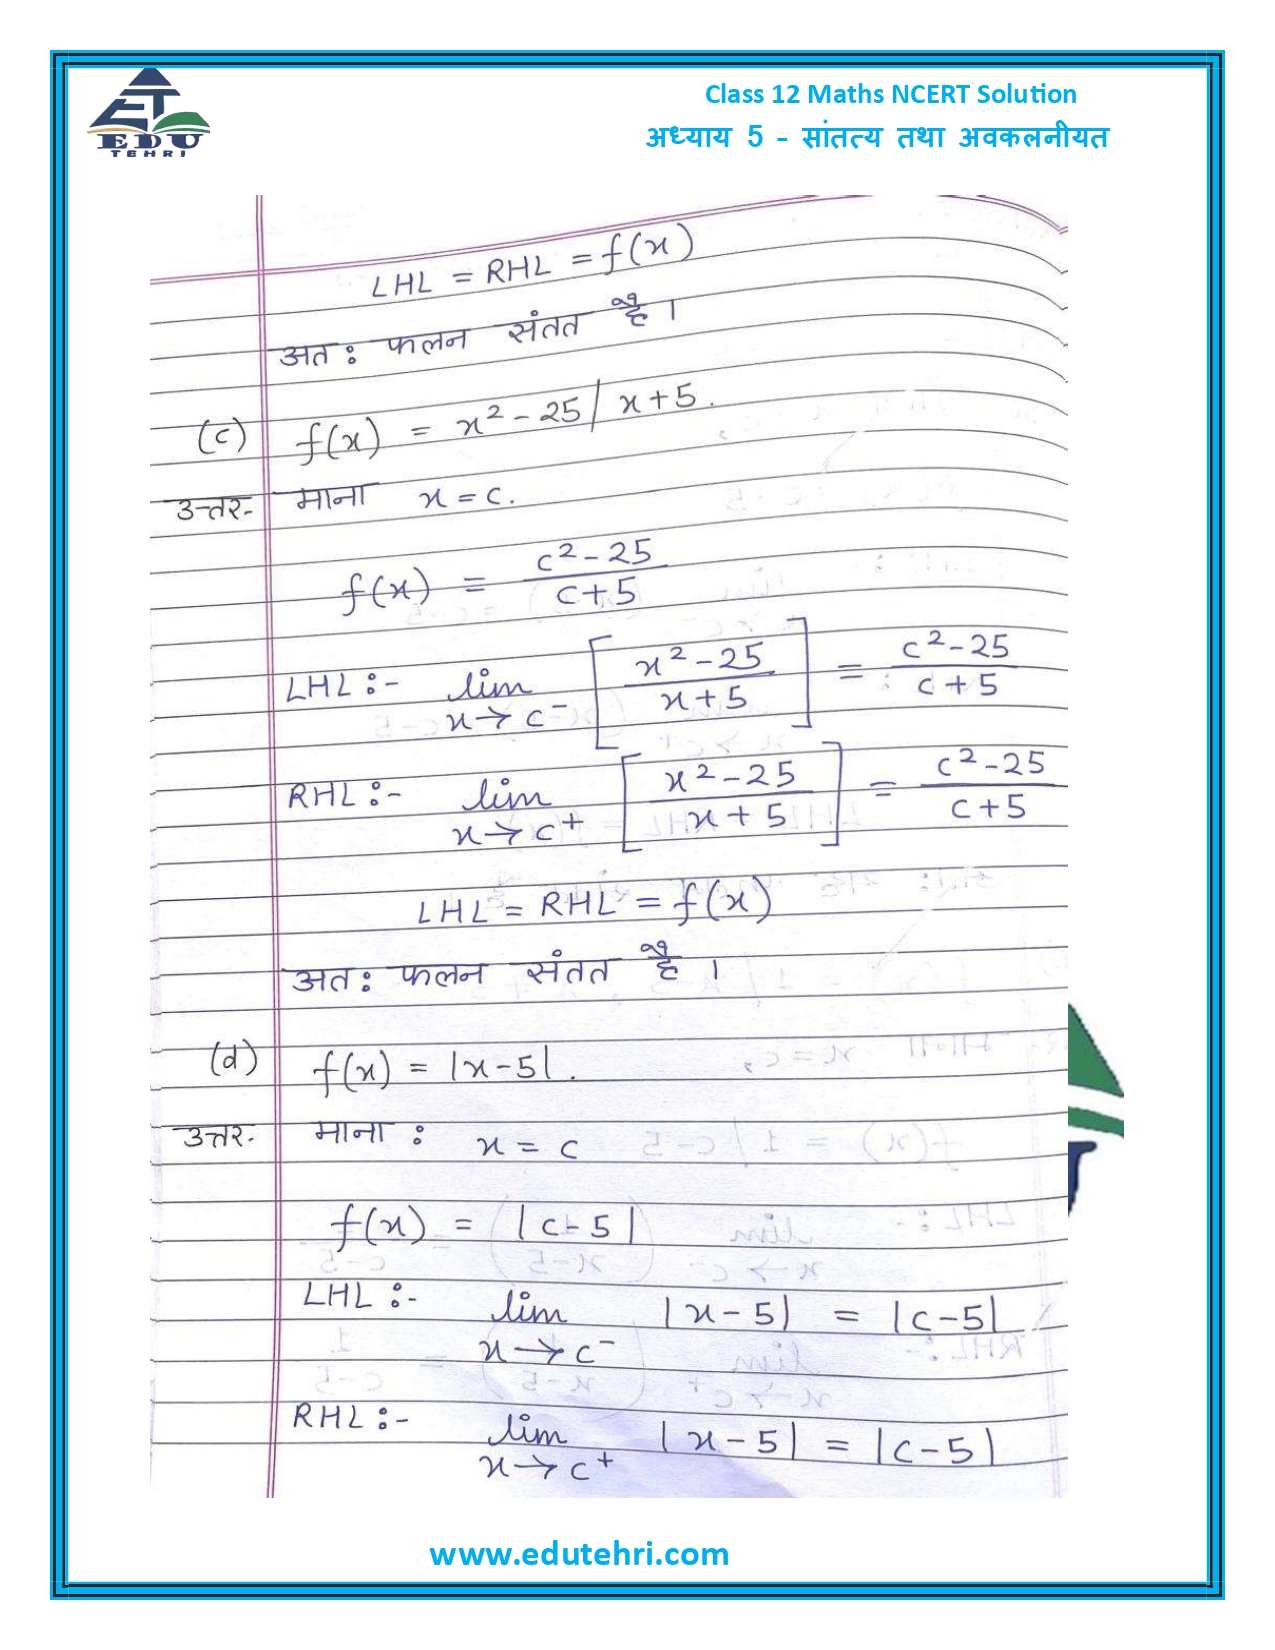 EDU
TEHRI
Class 12 Maths NCERT Solution
अध्याय 5 - सांतत्य तथा अवकलनीयत
LHL = RHL = f(x)
अतः फलन संतत है।
(c) f(x) = x² - 25 / x + 5.
उत्तर- माना x = c.
f(x) = c² - 25 / c + 5
LHL :- lim x→c⁻ [x² - 25 / x + 5] = c² - 25 / c + 5
RHL :- lim x→c⁺ [x² - 25 / x + 5] = c² - 25 / c + 5
LHL = RHL = f(x)
अतः फलन संतत है।
(d) f(x) = |x - 5|.
उत्तर- माना : x = c
f(x) = |c - 5|
LHL :- lim x→c⁻ |x - 5| = |c - 5|
RHL :- lim x→c⁺ |x - 5| = |c - 5|
www.edutehri.com